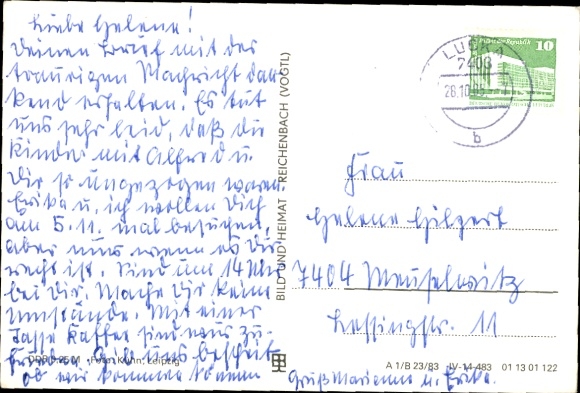 Liebe Helene!
Deinen Brief mit der
traurigen Nachricht dan
kend erhalten. Es tut
uns sehr leid, daß die
Kinder mit Alfred u.
Dir so ungezogen waren.
Erika u. ich wollen Dich
am 5.11. mal besuchen,
aber nur wenn es Dir
recht ist. Sind um 14 Uhr
bei Dir. Mache Dir keine
Umstände. Mit einer
Tasse Kaffee sind wir zu-
frieden. Gib uns bescheit
ob wir kommen können
Gruß Marianne u. Erika.
BILD UND HEIMAT REICHENBACH (VOGTL)
LUCKA
7406
b
10
Frau
Helene Hilpert
7404 Meuselwitz
Lessingstr. 11
Foto: Kühn, Leipzig
A 1/B 23/83 IV-14-483 01 13 01 122